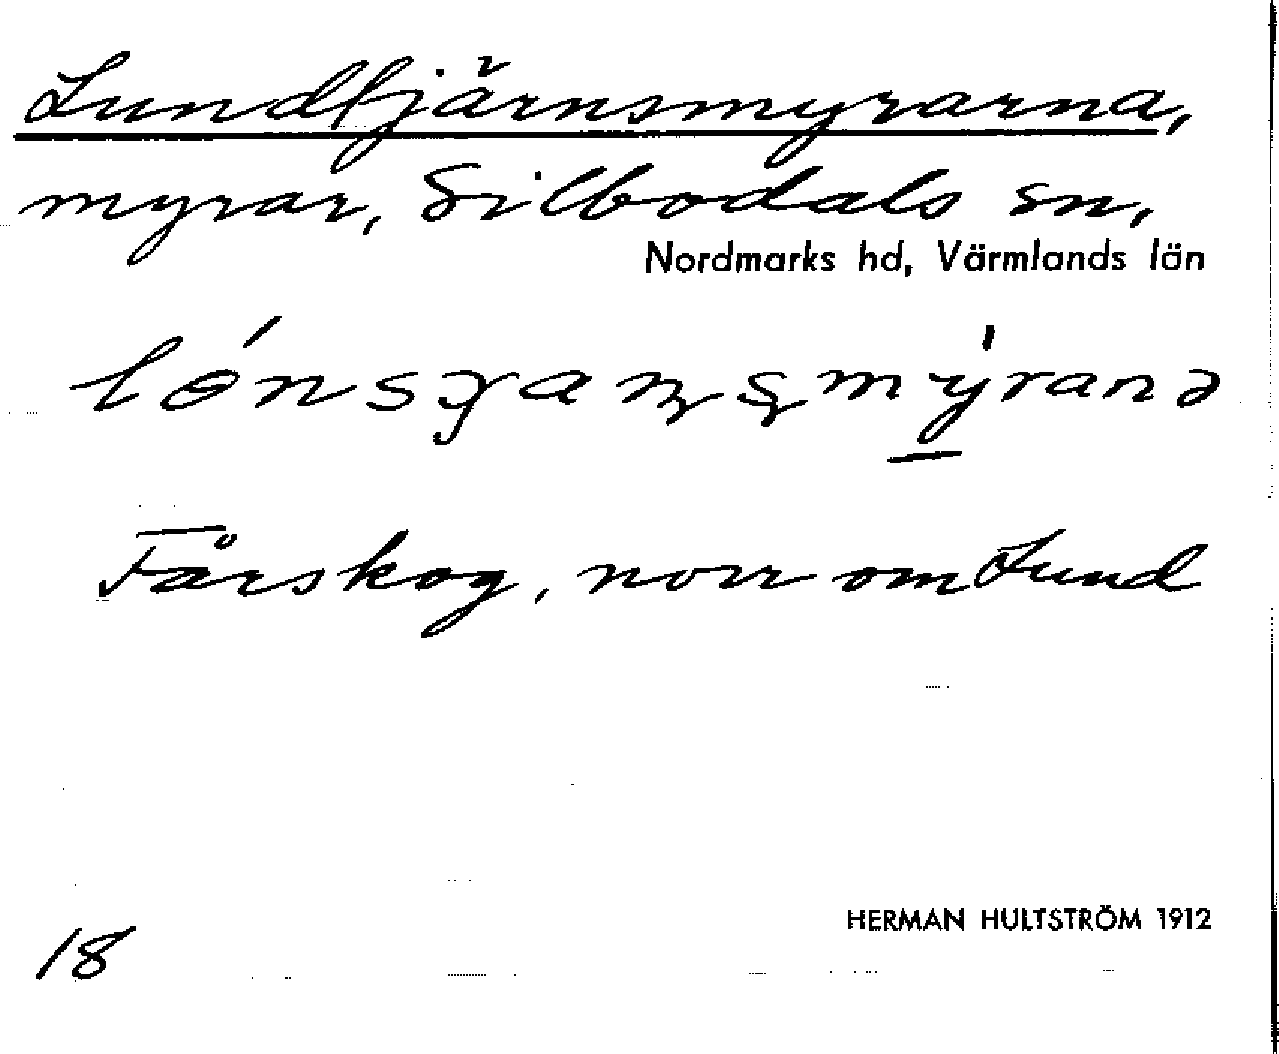 Lundtjärnsmyrarna,
myrar, Silbodals sn,
Nordmarks hd, Värmlands län
Fårskog, norr om Lund
HERMAN HULTSTRÖM 1912
18